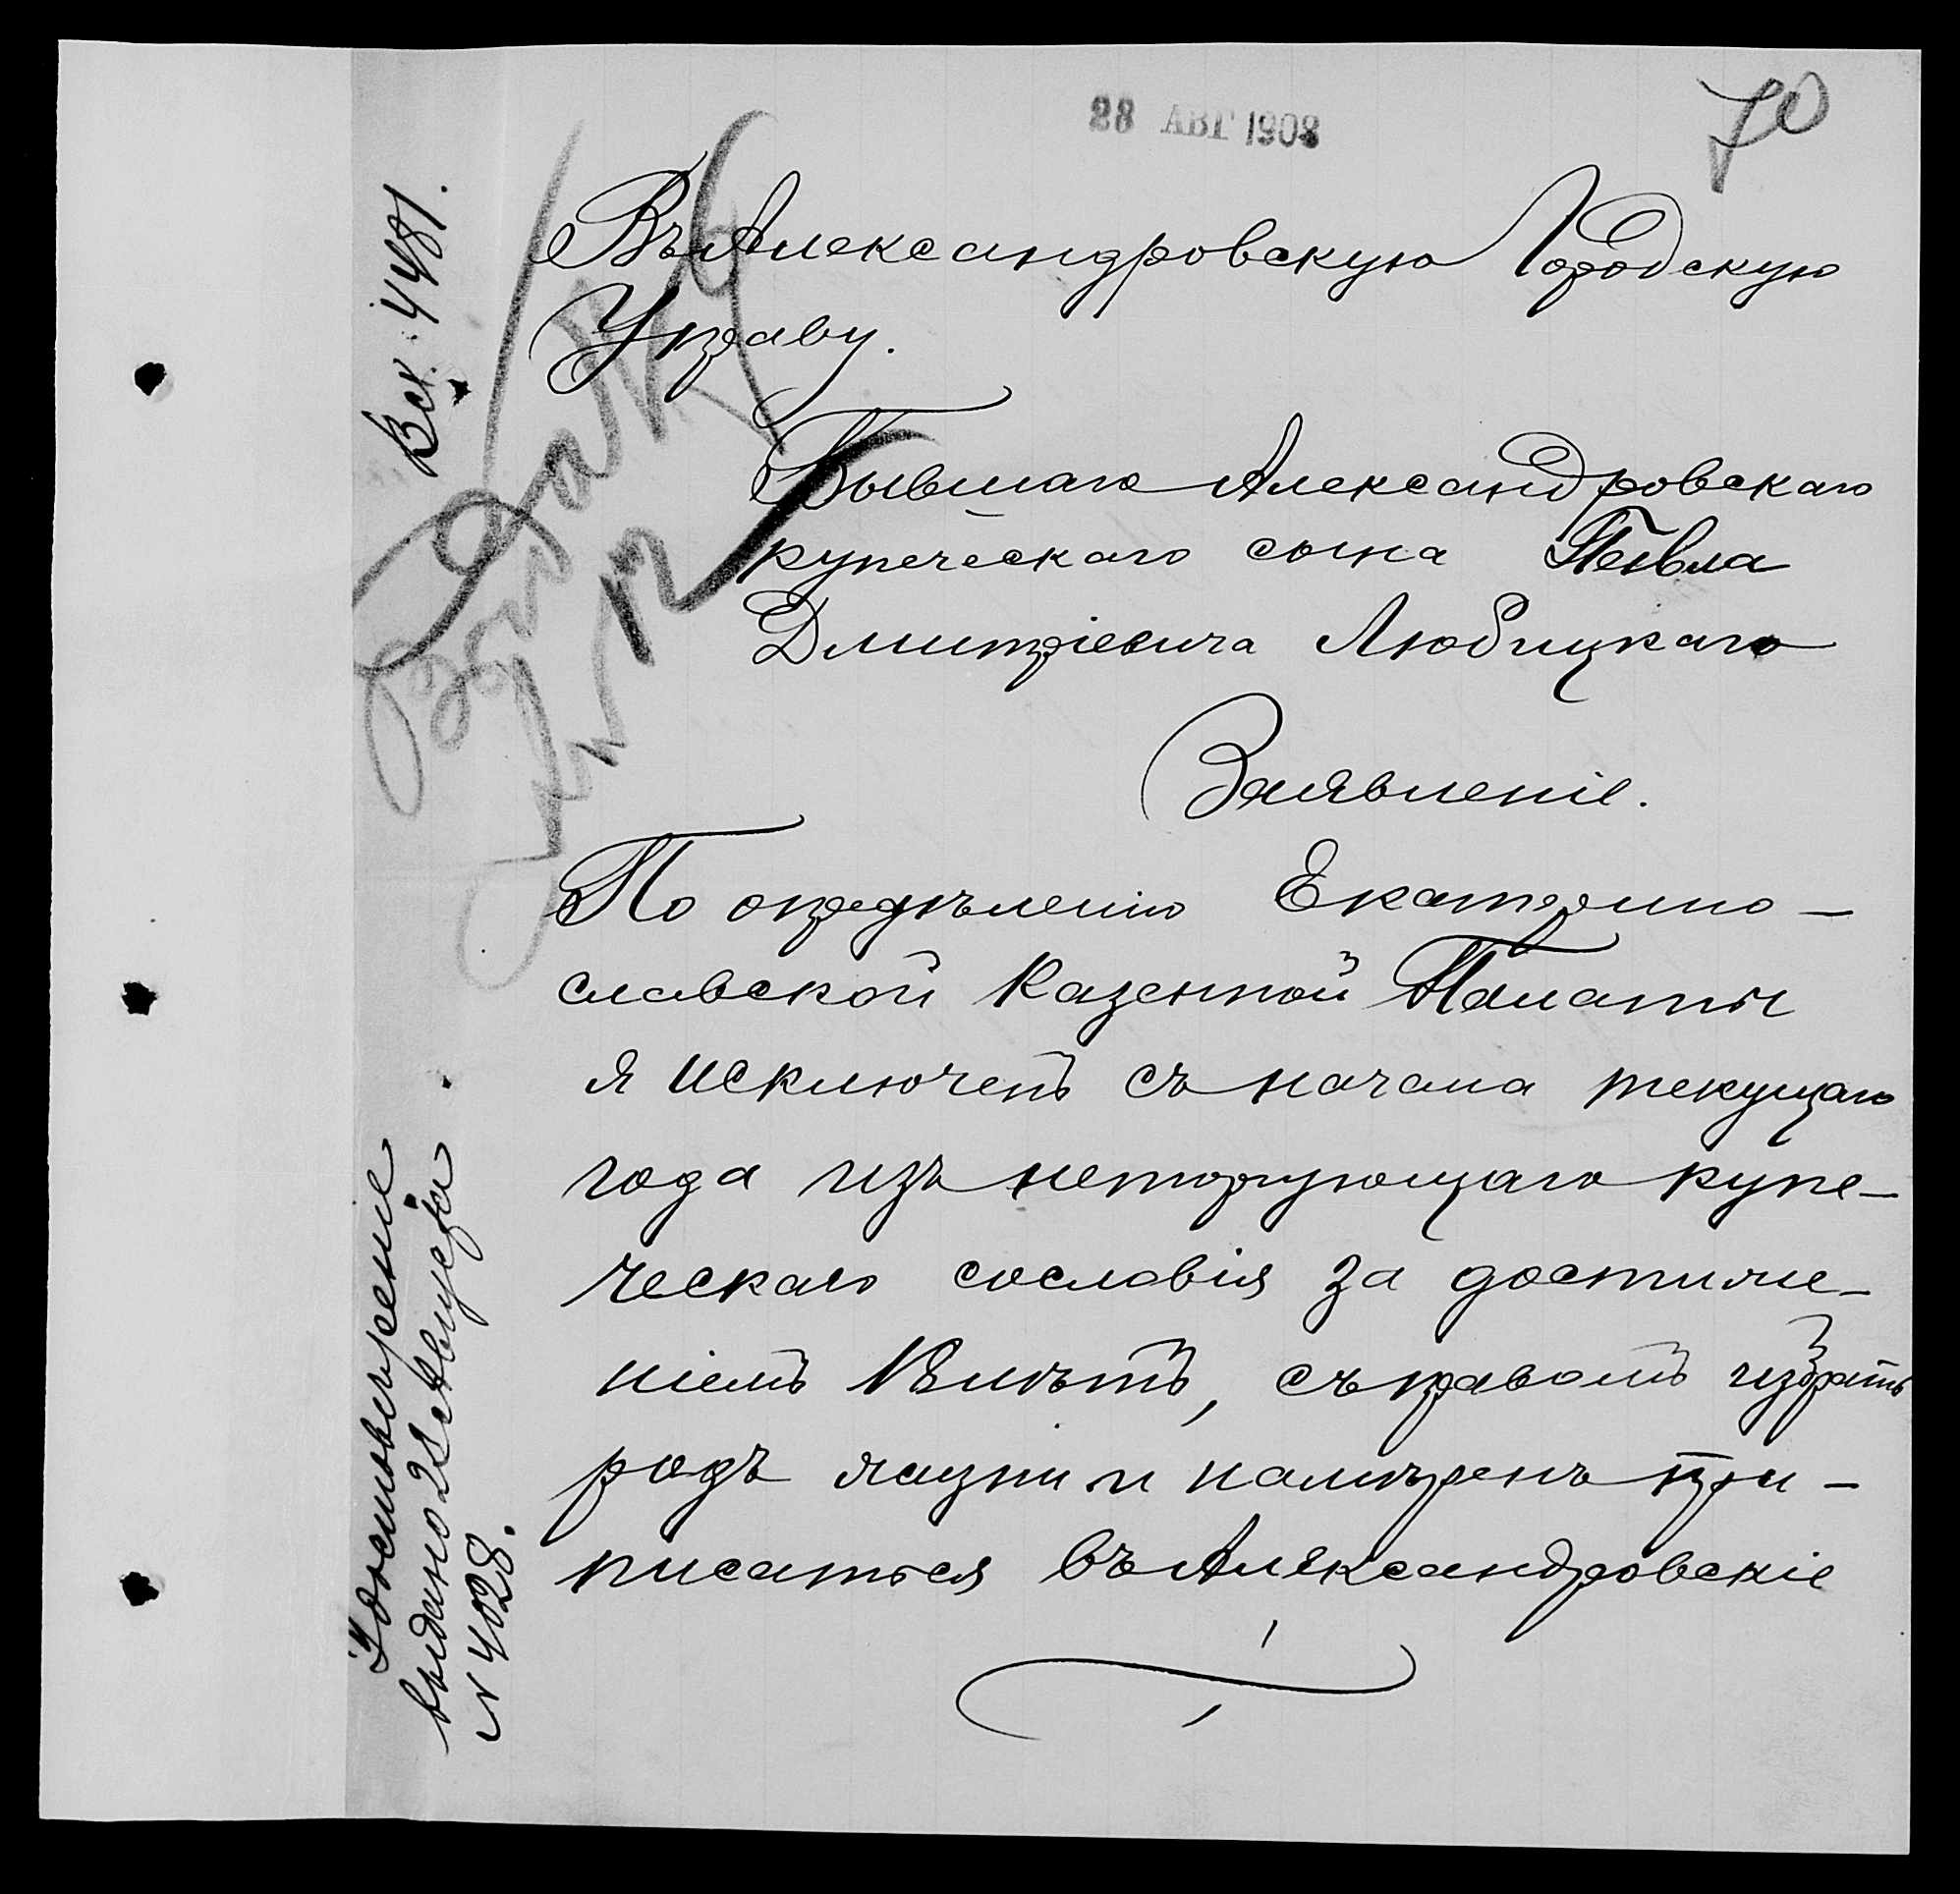 28 АВГ 1908
70
Въ Александровскую Городскую
Управу.
Бывшаго Александровскаго
купеческаго сына Павла
Дмитріевича Любицкаго
Заявленіе.
По опредѣленію Екатерино-
славской Казенной Палаты
я исключенъ съ начала текущаго
года изъ неторгующаго купе-
ческаго сословія за достиже-
ніемъ 18 лѣтъ, съ правомъ избрать
родъ жизни и намѣренъ при-
писаться въ Александровскіе
Вх. 4481.
Удостовѣреніе
выдано 28 Августа
№ 4028.